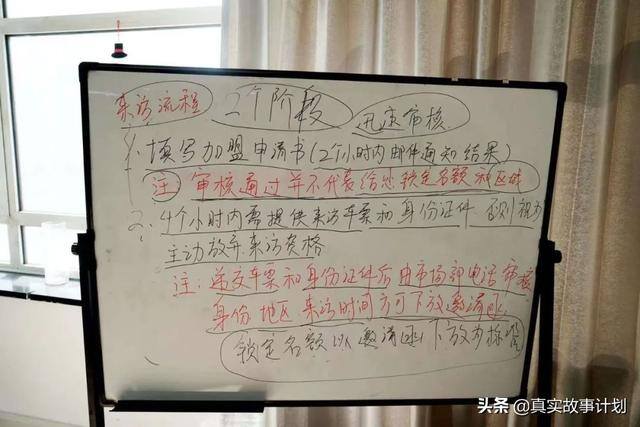 来访流程 2个阶段 迅速审核.
1. 填写加盟申请书(2个小时内邮件通知结果)
注: 审核通过并不代表给您锁定名额和区域
2. 4个小时内需提供来访车票和身份证件 否则视为
主动放弃来访资格
注: 递交车票和身份证件后由市场部电话审核
身份 地区 来访时间方可下放邀请函.
锁定名额以邀请函下放为标准
头条 @真实故事计划